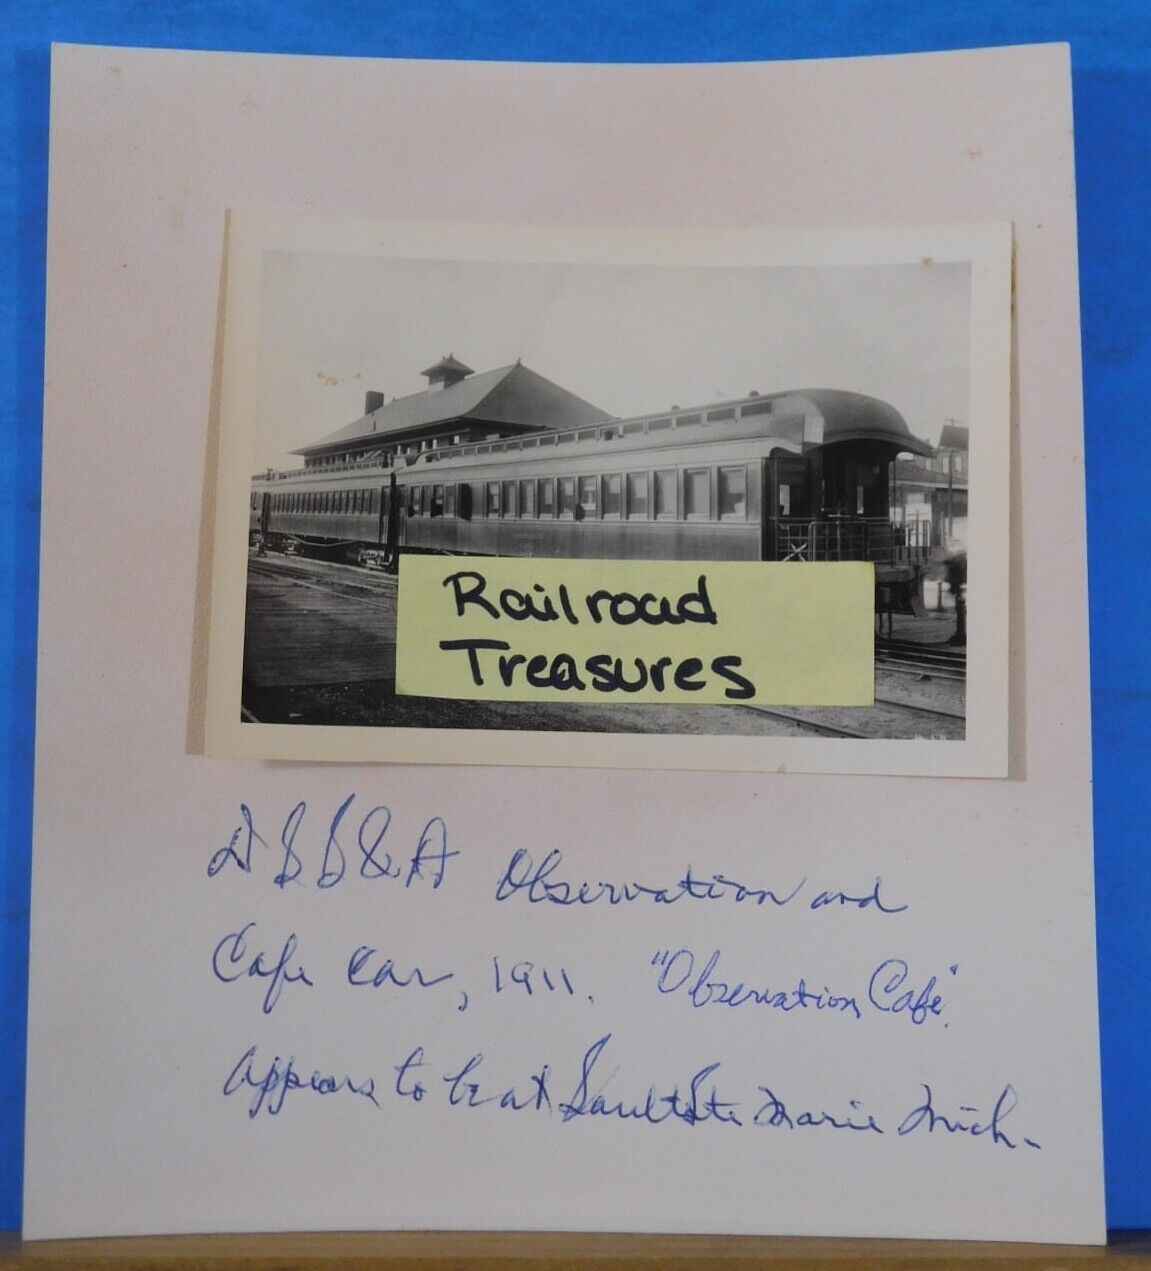 Railroad
Treasures
D S S & A Observation and
Cafe Car, 1911. "Observation Cafe".
Appears to be at Sault Ste Marie Mich.